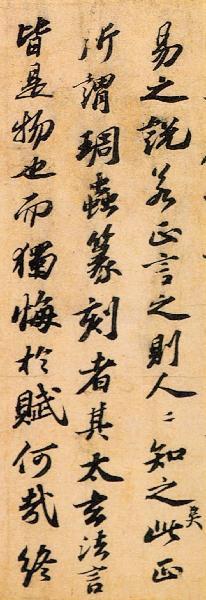 易之說若正言之則人〻知之矣此正
所謂琱蟲篆刻者其太玄法言
皆是物也而獨悔於賦何哉終